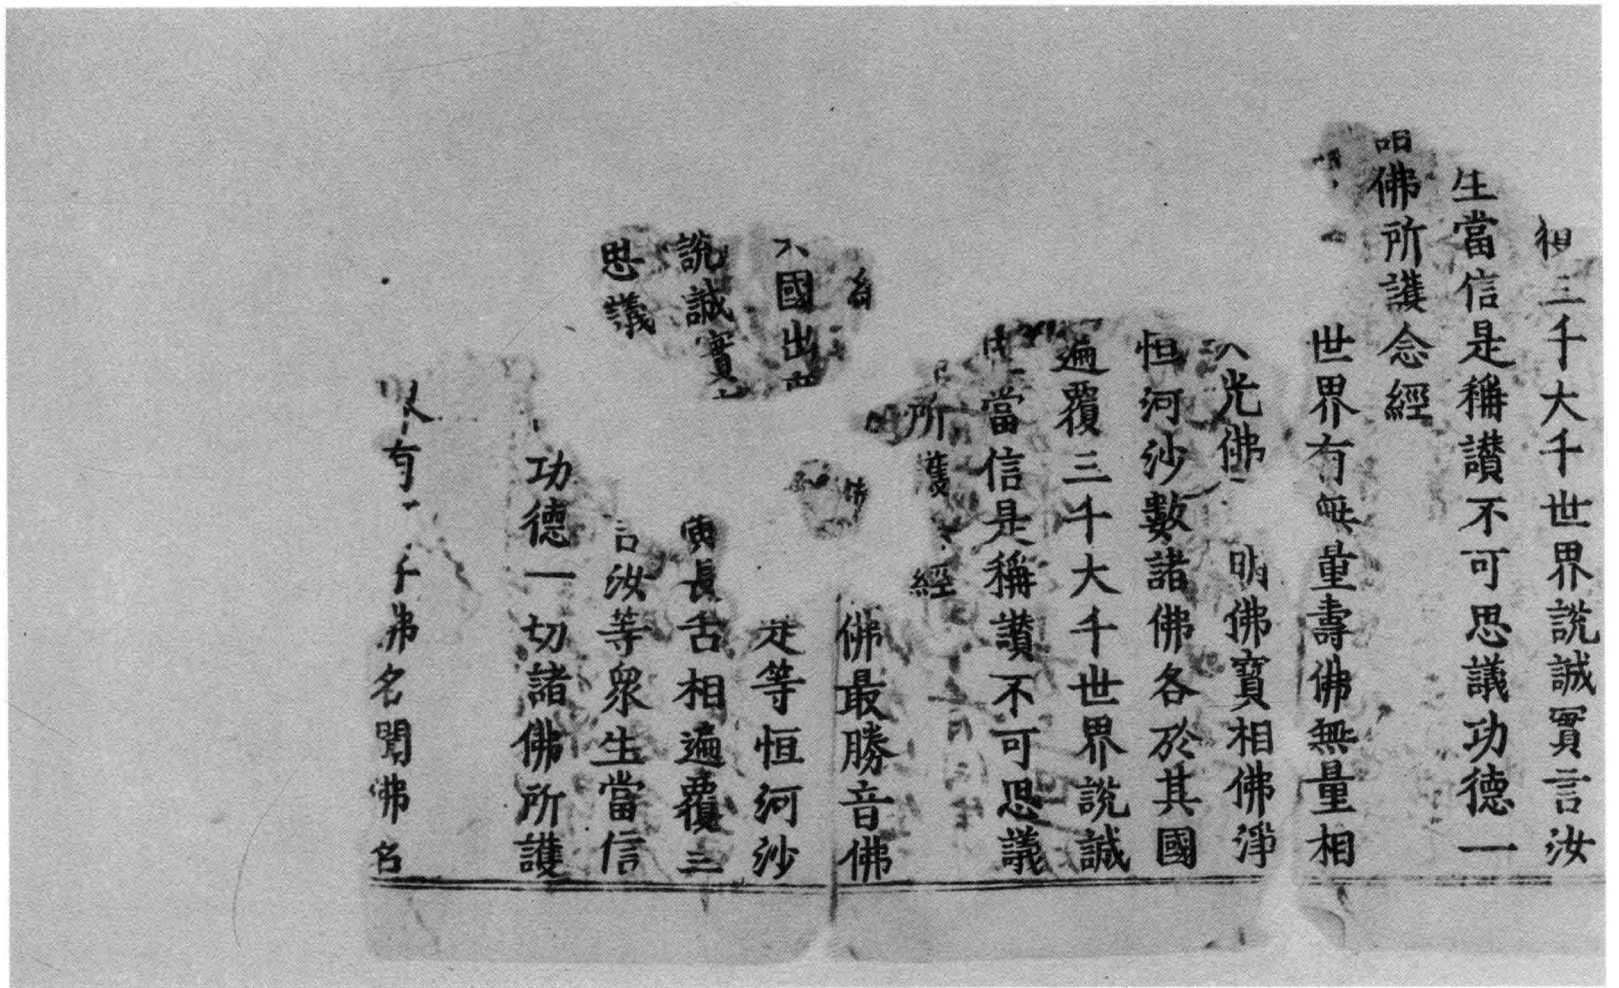 相三千大千世界說誠實言汝
生當信是稱讚不可思議功德一
佛所護念經
世界有無量壽佛無量相
光佛 明佛寶相佛淨
恒河沙數諸佛各於其國
遍覆三千大千世界說誠
當信是稱讚不可思議
所護 經
佛最勝音佛
國出 是等恒河沙
說誠實 長舌相遍覆三
思議 言汝等衆生當信
功德一切諸佛所護
人有 佛名聞佛名